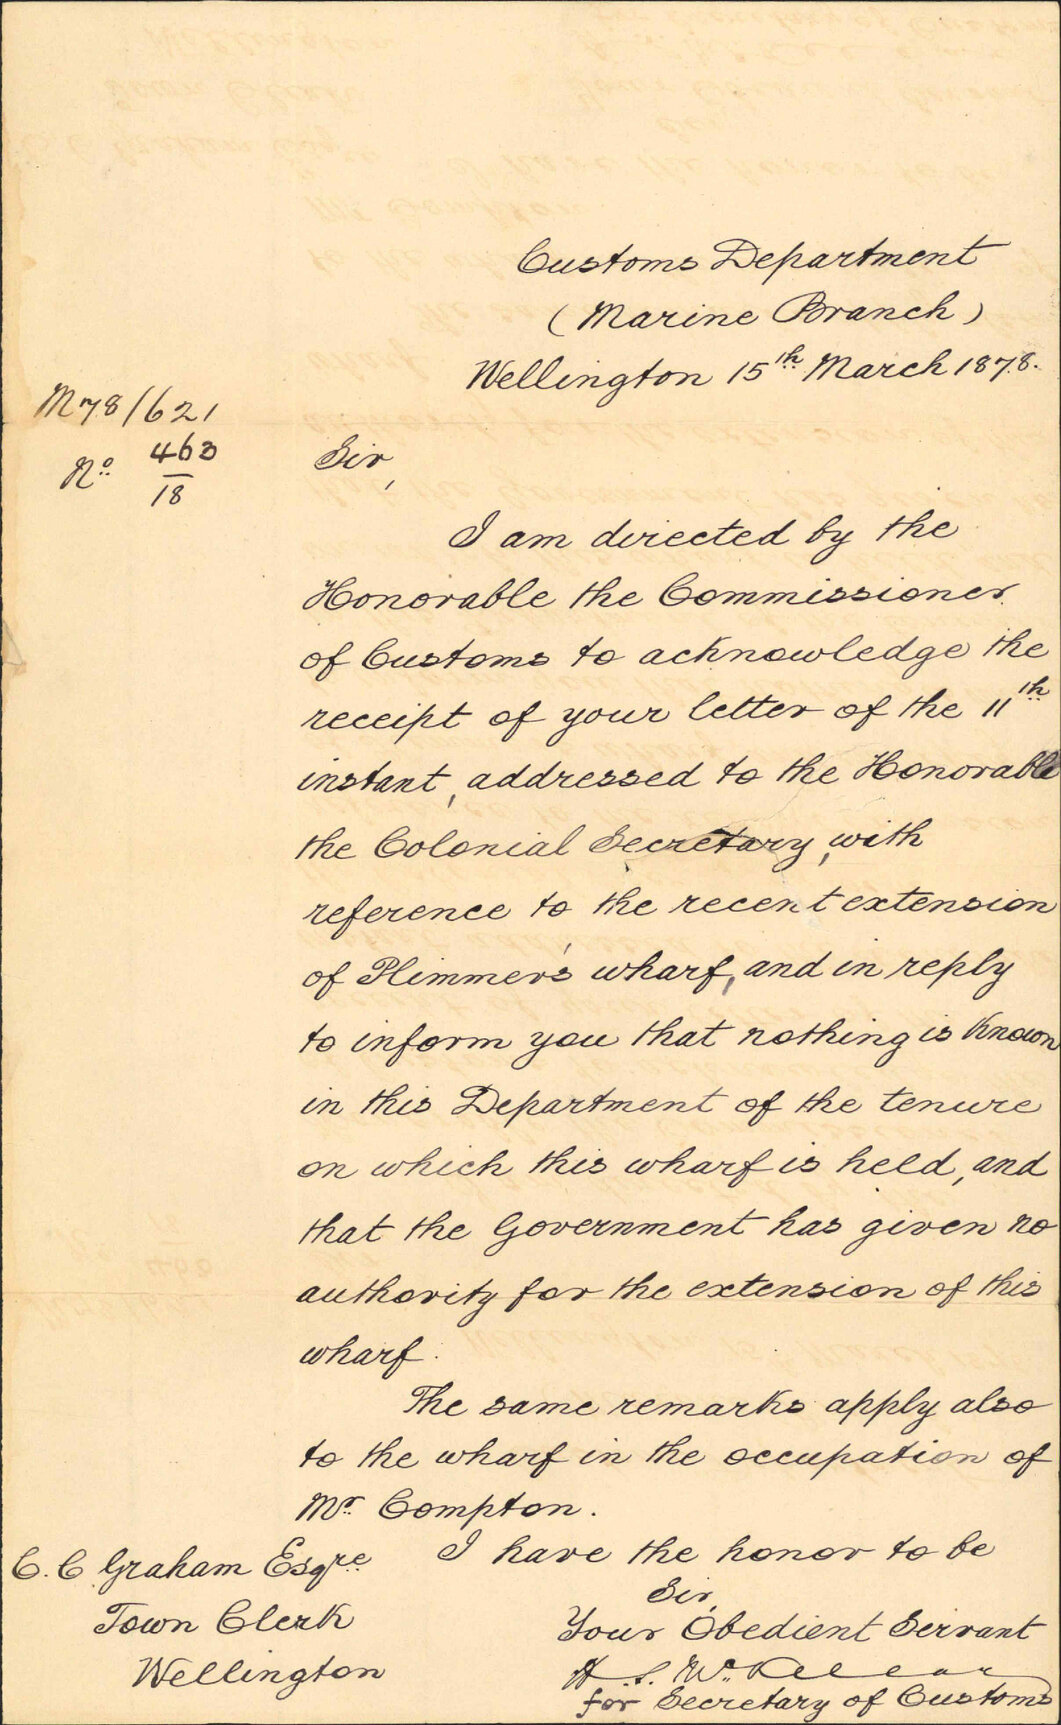 Customs Department
(Marine Branch)
Wellington 15th March 1878.
M78/621
No 463
18
Sir,
I am directed by the
Honorable the Commissioner
of Customs to acknowledge the
receipt of your letter of the 11th
instant, addressed to the Honorable
the Colonial Secretary, with
reference to the recent extension
of Plimmer's wharf, and in reply
to inform you that nothing is known
in this Department of the tenure
on which this wharf is held, and
that the Government has given no
authority for the extension of this
wharf.
The same remarks apply also
to the wharf in the occupation of
Mr Compton.
I have the honor to be
Sir,
Your Obedient Servant
H. S. McKellar
for Secretary of Customs
C. C Graham Esqre
Town Clerk
Wellington